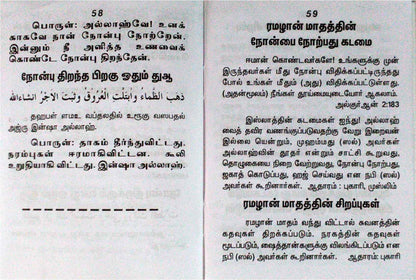 58
பொருள்: அல்லாஹ்வே! உனக்
காகவே நான் நோன்பு நோற்றேன்.
இன்னும் நீ அளித்த உணவைக்
கொண்டே நோன்பு திறந்தேன்.
நோன்பு திறந்த பிறகு ஓதும் துஆ
ذَهَبَ الظَّمَاءُ وَابْتَلَّتِ الْعُرُوْقُ وَثَبَتَ الْاَجْرُ اِنْشَاءَ اللّٰهُ
தஹபள் ளமஉ வப்தலதில் உரூகு வஸபதல்
அஜ்ரு இன்ஷா அல்லாஹ்.
பொருள்: தாகம் தீர்ந்துவிட்டது.
நரம்புகள் ஈரமாகிவிட்டன. கூலி
உறுதியாகிவிட்டது. இன்ஷா அல்லாஹ்.
59
ரமழான் மாதத்தின்
நோன்பை நோற்பது கடமை
ஈமான் கொண்டவர்களே! உங்களுக்கு முன்
இருந்தவர்கள் மீது நோன்பு விதிக்கப்பட்டிருந்தது
போல் உங்கள் மீதும் (அது) விதிக்கப்பட்டுள்ளது.
(அதன்மூலம்) நீங்கள் தூய்மையுடையோர் ஆகலாம்.
அல்குர்ஆன் 2:183
இஸ்லாத்தின் கடமைகள் ஐந்து! அல்லாஹ்
வைத் தவிர வணங்கப்படுவதற்கு வேறு இறைவன்
இல்லை யென்றும், முஹம்மது (ஸல்) அவர்கள்
அல்லாஹ்வின் தூதர் என்றும் சாட்சி கூறுவது,
தொழுகையை நிலை பேறுவது, நோன்பு நோற்பது,
ஜகாத் கொடுப்பது, ஹஜ் செய்வது என நபி (ஸல்)
அவர்கள் கூறினார்கள். ஆதாரம் : புகாரி, முஸ்லிம்
ரமழான் மாதத்தின் சிறப்புகள்
ரமழான் மாதம் வந்து விட்டால் சுவனத்தின்
கதவுகள் திறக்கப்படும். நரகத்தின் கதவுகள்
மூடப்படும், ஷைத்தான்களுக்கு விலங்கிடப்படும் என
நபி (ஸல்) அவர்கள் கூறினார்கள். ஆதாரம்: புகாரி